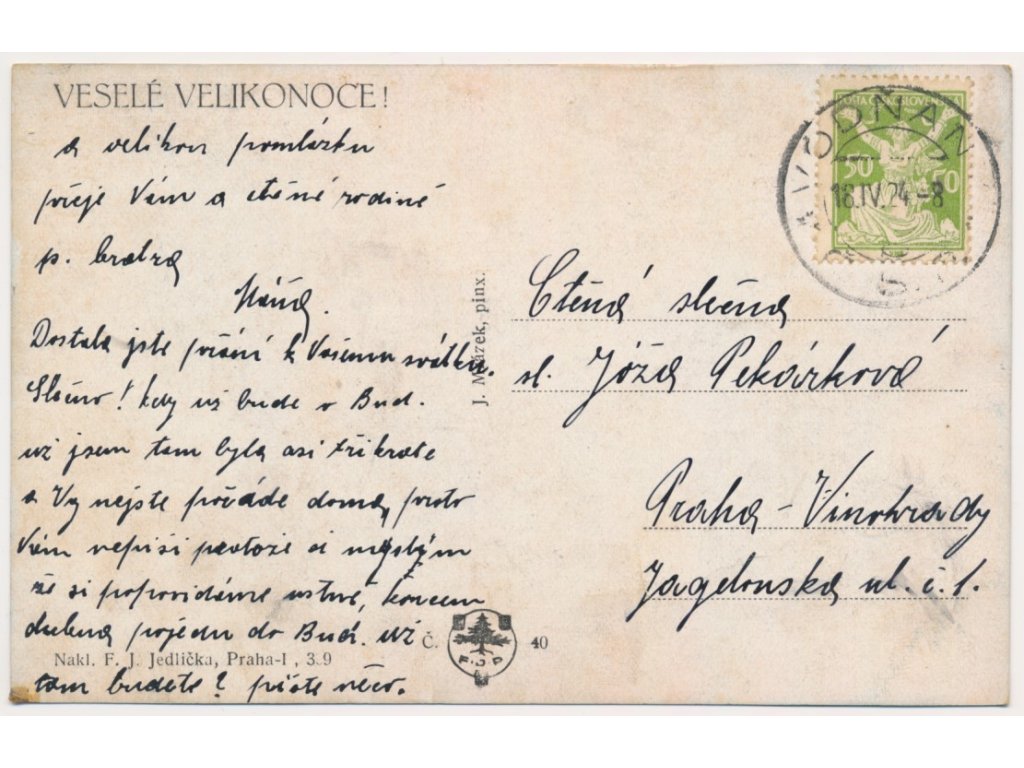 VESELÉ VELIKONOCE!
a velikou pomlázku
přeje Vám a ctěné rodině
p. bratra
Máňa.
Dostala jste přání k Vašemu svátku.
Slečno! kdy už bude v Bud.
už jsem tam byla asi třikráte
a Vy nejste pořáde doma, proto
Vám nepíši protože si myslým
že si popovídáme ustně, koncem
dubna pojedu do Bud. už
tam budete? pište něco.
Nakl. F. J. Jedlička, Praha-I, 3.9
Č. 40
J. Mrázek, pinx.
POŠTA ČESKOSLOVENSKÁ
50 50
VODŇAN
18.IV.24.-8
Ctěná slečna
sl. Jóža Pekárková
Praha-Vinohrady
Jagelonska ul. č. 1.